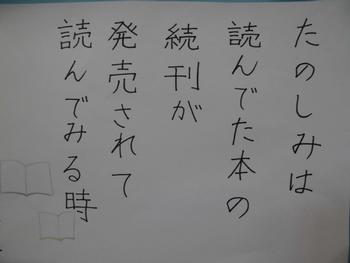 たのしみは
読んでた本の
続刊が
発売されて
読んでみる時